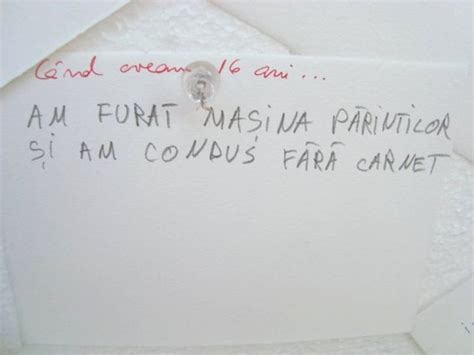 Când aveam 16 ani...
AM FURAT MAȘINA PĂRINTILOR
ȘI AM CONDUS FĂRĂ CARNET